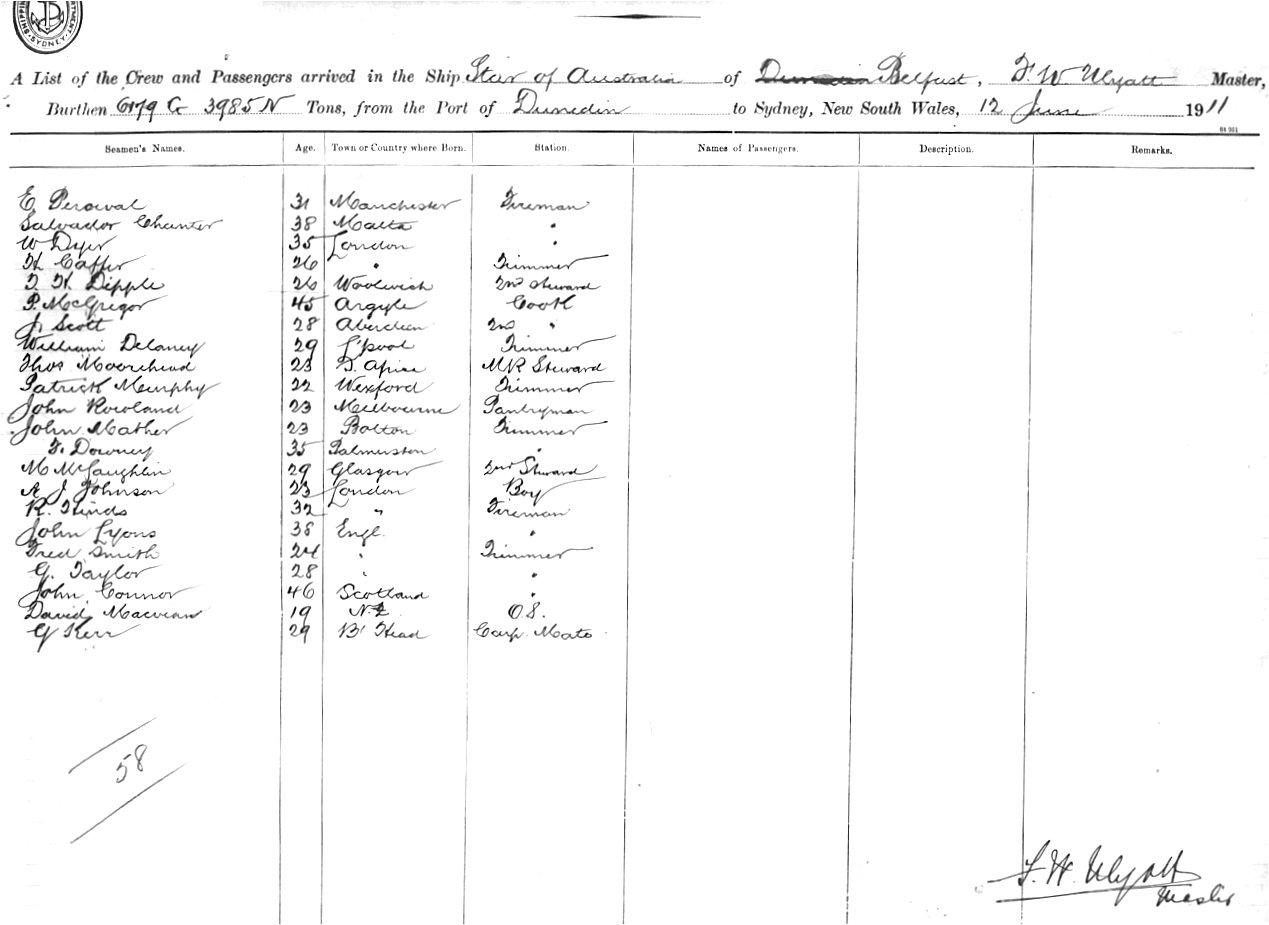 SHIPPING DEPARTMENT · SYDNEY ·
A List of the Crew and Passengers arrived in the Ship Star of Australia of Dunedin Belfast, F. W Wyatt Master,
Burthen 6179 G 3985 N Tons, from the Port of Dunedin to Sydney, New South Wales, 12 June 1911
Seamen's Names. Age. Town or Country where Born. Station. Names of Passengers. Description. Remarks.
E Percival 31 Manchester Fireman
Salvador Chanter 38 Malta "
W Dyer 35 London "
H Caffer 26 " Trimmer
T. H. Dipple 26 Woolwich 2nd Steward
P. McGregor 45 Argyle Cook
J. Scott 28 Aberdeen 2nd "
William Delaney 29 L'pool Trimmer
Thos Moorehead 23 MR Steward
Patrick Murphy 22 Wexford Trimmer
John Rowland 23 Melbourne Pantryman
John Mather 23 Bolton Trimmer
F. Downey 35 Palmerston "
M McLaughlin 29 Glasgow 2nd Steward
A J Johnson 23 London Boy
R. Hinds 32 " Fireman
John Lyons 38 Engl. "
Fred Smith 24 " Trimmer
G. Taylor 28 " "
John Connor 46 Scotland "
David Macvean 19 N.Z O.S.
G Kerr 29 B' Head Carp. Mate
58
F. W. Wyatt
Master